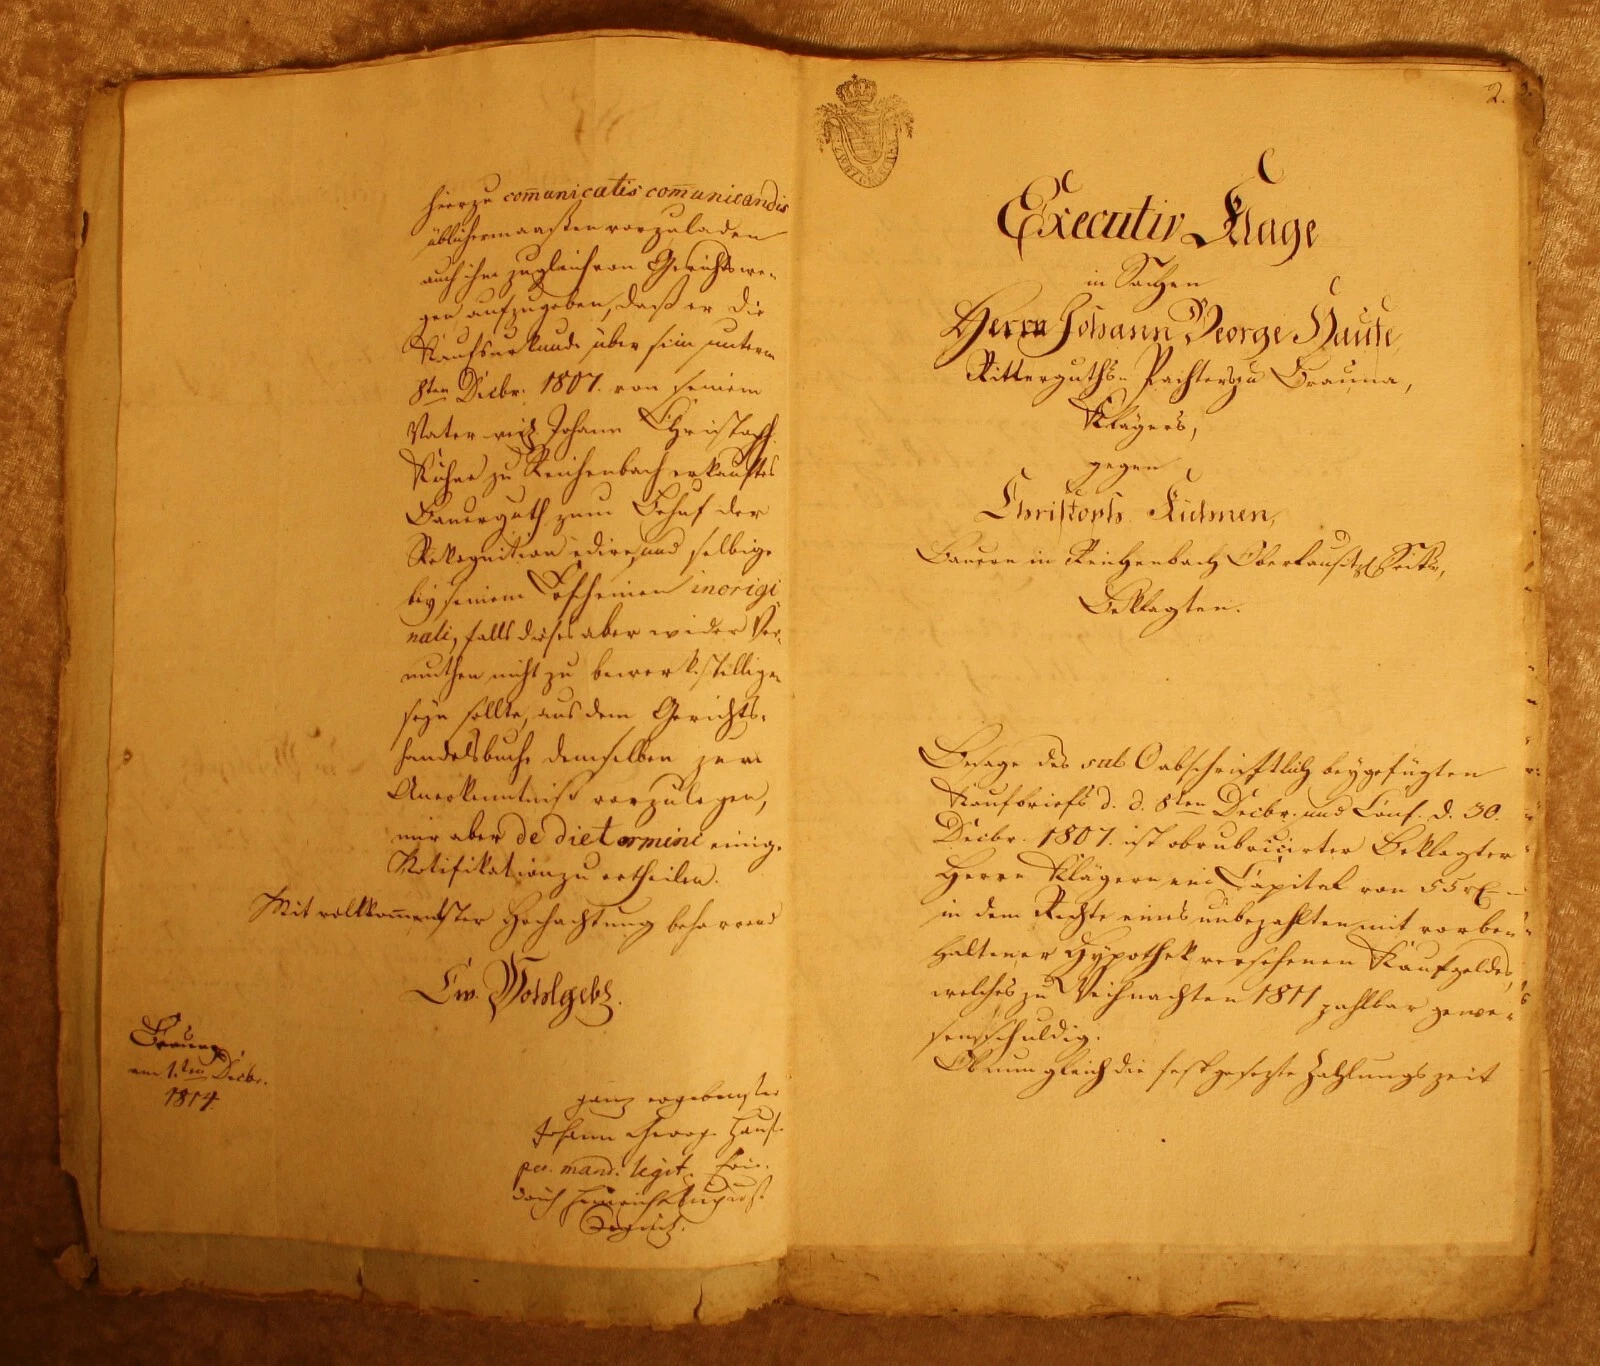 hierzu com̅unicatis com̅unicandis
üblichermaaßen vorzuladen
auch ihm zugleich von Gerichtswe-
gen aufzugeben, daß er die
Kaufsurkunde über sein unterm
8ten Decbr. 1807. von seinem
Vater Johann Christoph
Kühne zu Reichenbach erkauftes
Bauerguth zum Behuf der
Rekognition edire, und selbige
bey seinem Erscheinen in origi
nali, falls dieses aber wider Ver-
muthen nicht zu bewerkstelligen
seyn sollte, aus dem Gerichts-
handelsbuche demselben zum
Anerkenntniß vorzulegen,
mir aber de die termini einige
Notifikation zu ertheilen.
Mit vollkom̅enster Hochachtung beharrend
Ew. Wohlgeb.
Brauna
am 1.ten Decbr.
1814.
ganz ergebenster
Johann George Haufe
per. mand. legit. Frie-
drich Heinrich August
2.
Executiv Klage
in Sachen
Herrn Johann George Haufe
Ritterguths-Pachters zu Brauna,
Klägers,
gegen
Christoph Kühnen,
Bauern in Reichenbach Oberlausitz.
Beklagten.
Besage des sub O abschriftlich beygefügten
Kaufbriefs d. d. 8ten Decbr. und Conf. d. 30.
Decbr. 1807. ist obrubricirter Beklagter
Herrn Klägern ein Capital von 55
in dem Rechte eines unbezahlten mit vorbe-
haltener Hypothek versehenen Kaufgeldes,
welches zu Weihnachten 1811 zahlbar gewe-
sen, schuldig.
Ob nun gleich die festgesezte Zahlungszeit